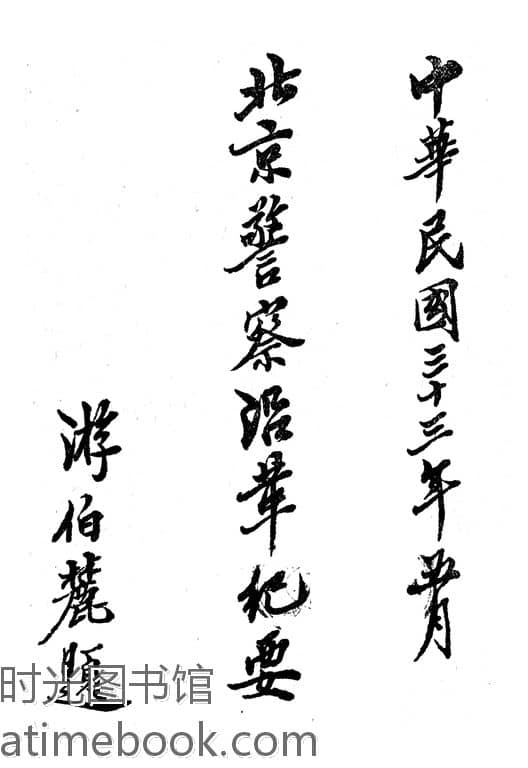 中華民國三十三年五月
北京警察沿革紀要
游伯麓題
时光图书馆
atimebook.com